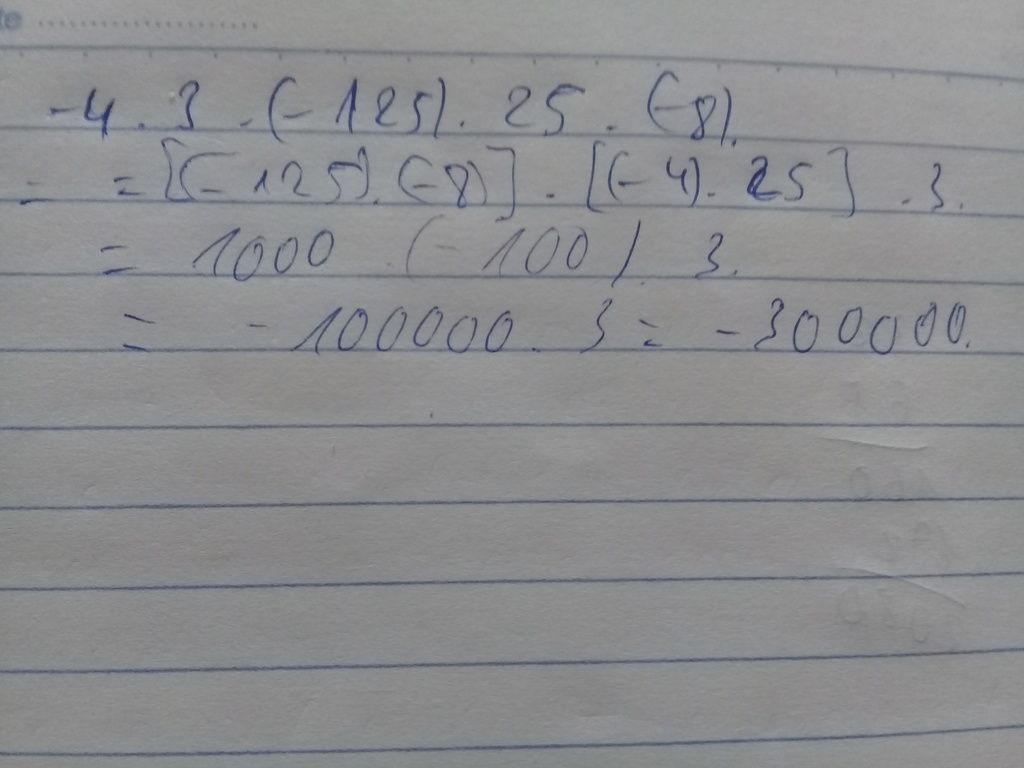 te ........................
-4 . 3 . (-125) . 25 . (-8).
= = [(-125) . (-8)] . [(-4) . 25] . 3.
= 1000 . (-100) . 3.
= -100000 . 3 = -300000.